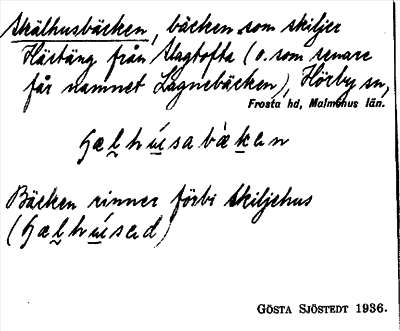 Skälhusbäcken, bäcken som skiljer
Härtäng från Slagtofta (o. som senare
får namnet Lågnebäcken), Hörby sn,
Frosta hd, Malmöhus län.
Bäcken rinner förbi Skiljehus
GÖSTA SJÖSTEDT 1936.